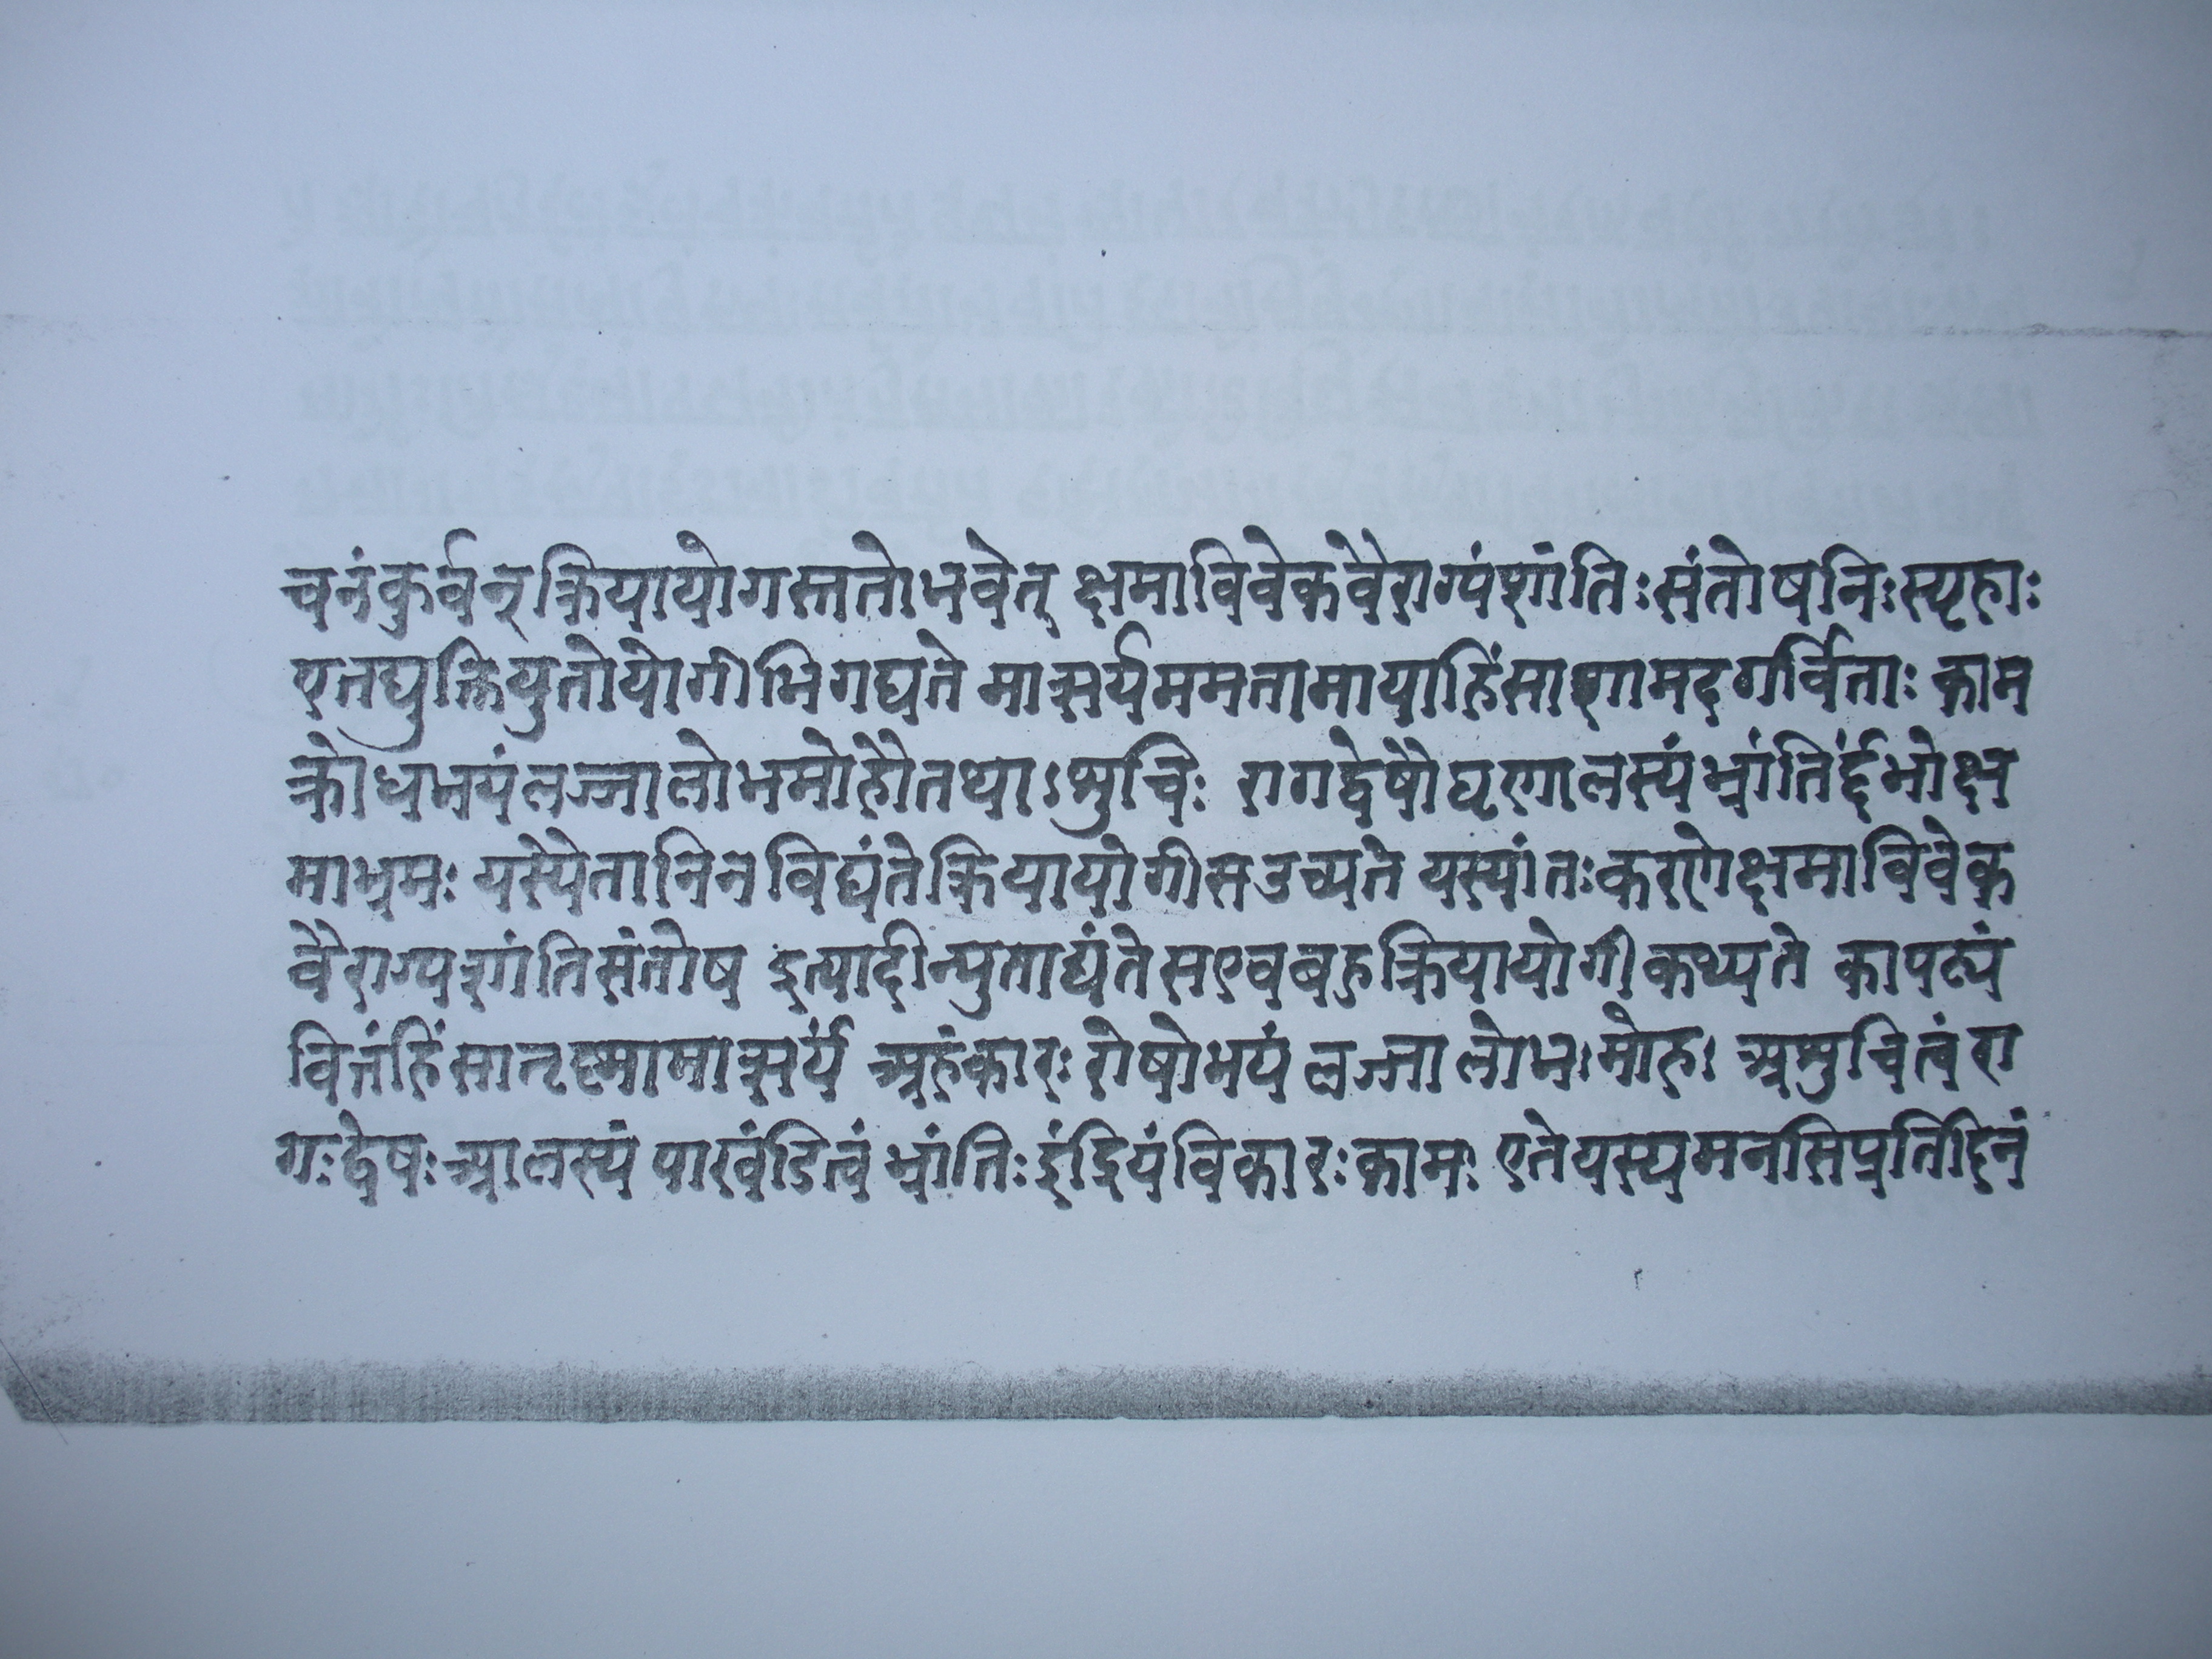 चनंकुर्वन् क्रियायोगस्ततोभवेत् क्षमाविवेकवैराग्यंशांतिःसंतोषनिःस्पृहाः
एतद्युक्तियुतोयोगीभिगद्यते मात्सर्यममतामायाहिंसाशामदगर्विताः काम
क्रोधभयंलज्जालोभमोहौतथाऽशुचिः रागद्वेषौघृणालस्यंभ्रांतिर्दंभोक्ष
माभ्रमः यस्यैतानिनविद्यंतेक्रियायोगीसउच्यते यस्यांतःकरणेक्षमाविवेक
वैराग्यशांतिसंतोष इत्यादीन्युताद्यंतेसएवबहुक्रियायोगीकथ्यते कापट्यं
वित्तंहिंसातृष्णामात्सर्यं अहंकारः रोषोभयं लज्जा लोभःमोहः अशुचित्वंरा
गःद्वेषःआलस्यं पाखंडित्वं भ्रांतिःइंद्रियंविकारःकामः एतेयस्यमनसिप्रतिदिनं